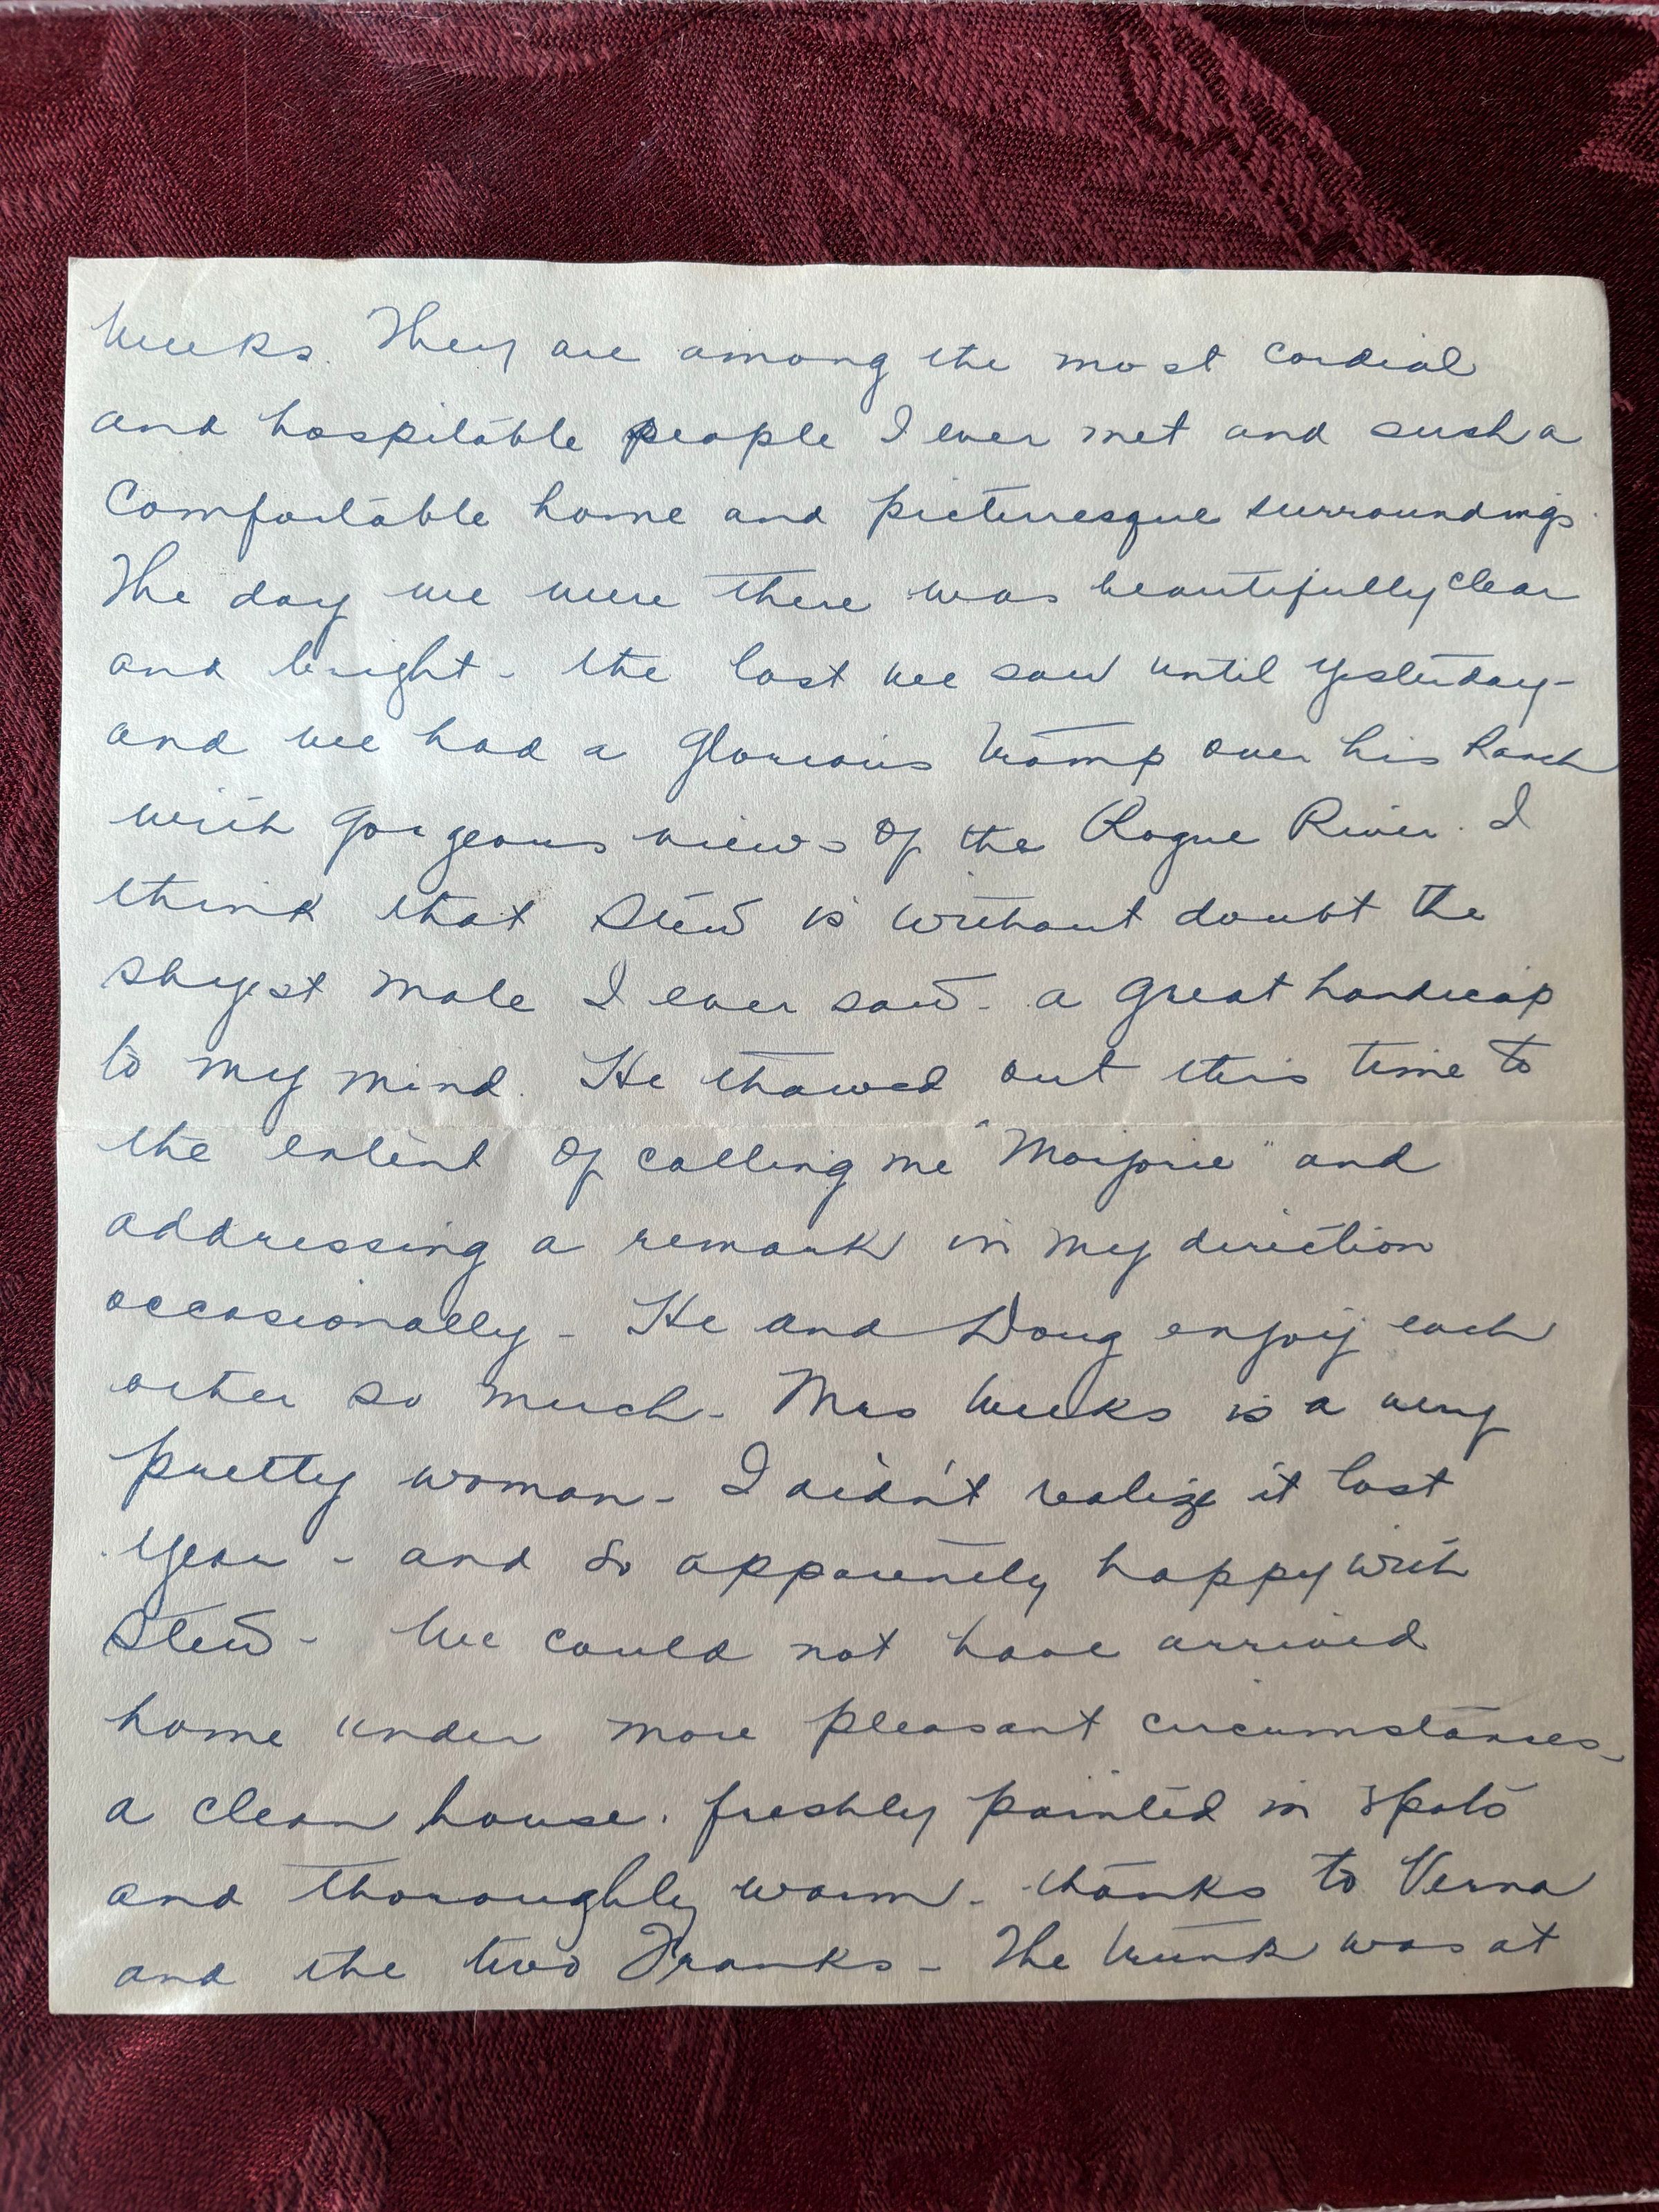 Weeks. They are among the most cordial
and hospitable people I ever met and such a
comfortable home and picturesque surroundings.
The day we were there was beautifully clear
and bright - the last we saw until yesterday -
and we had a glorious tramp over his ranch
with gorgeous views of the Rogue River. I
think that Stew is without doubt the
shyest male I ever saw - a great handicap
to my mind. He thawed out this time to
the extent of calling me "Marjorie" and
addressing a remark in my direction
occasionally - He and Doug enjoy each
other so much - Mrs Weeks is a very
pretty woman - I didn't realize it last
year - and so apparently happy with
Stew - We could not have arrived
home under more pleasant circumstances -
a clean house, freshly painted in spots
and thoroughly warm - thanks to Verna
and the two Franks - The trunk was at